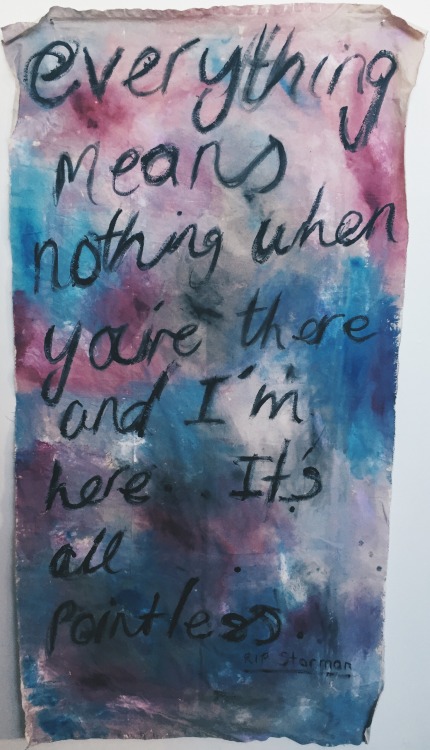 everything
means
nothing when
you're there
and I'm
here... It's
all
pointless.
RIP Starman